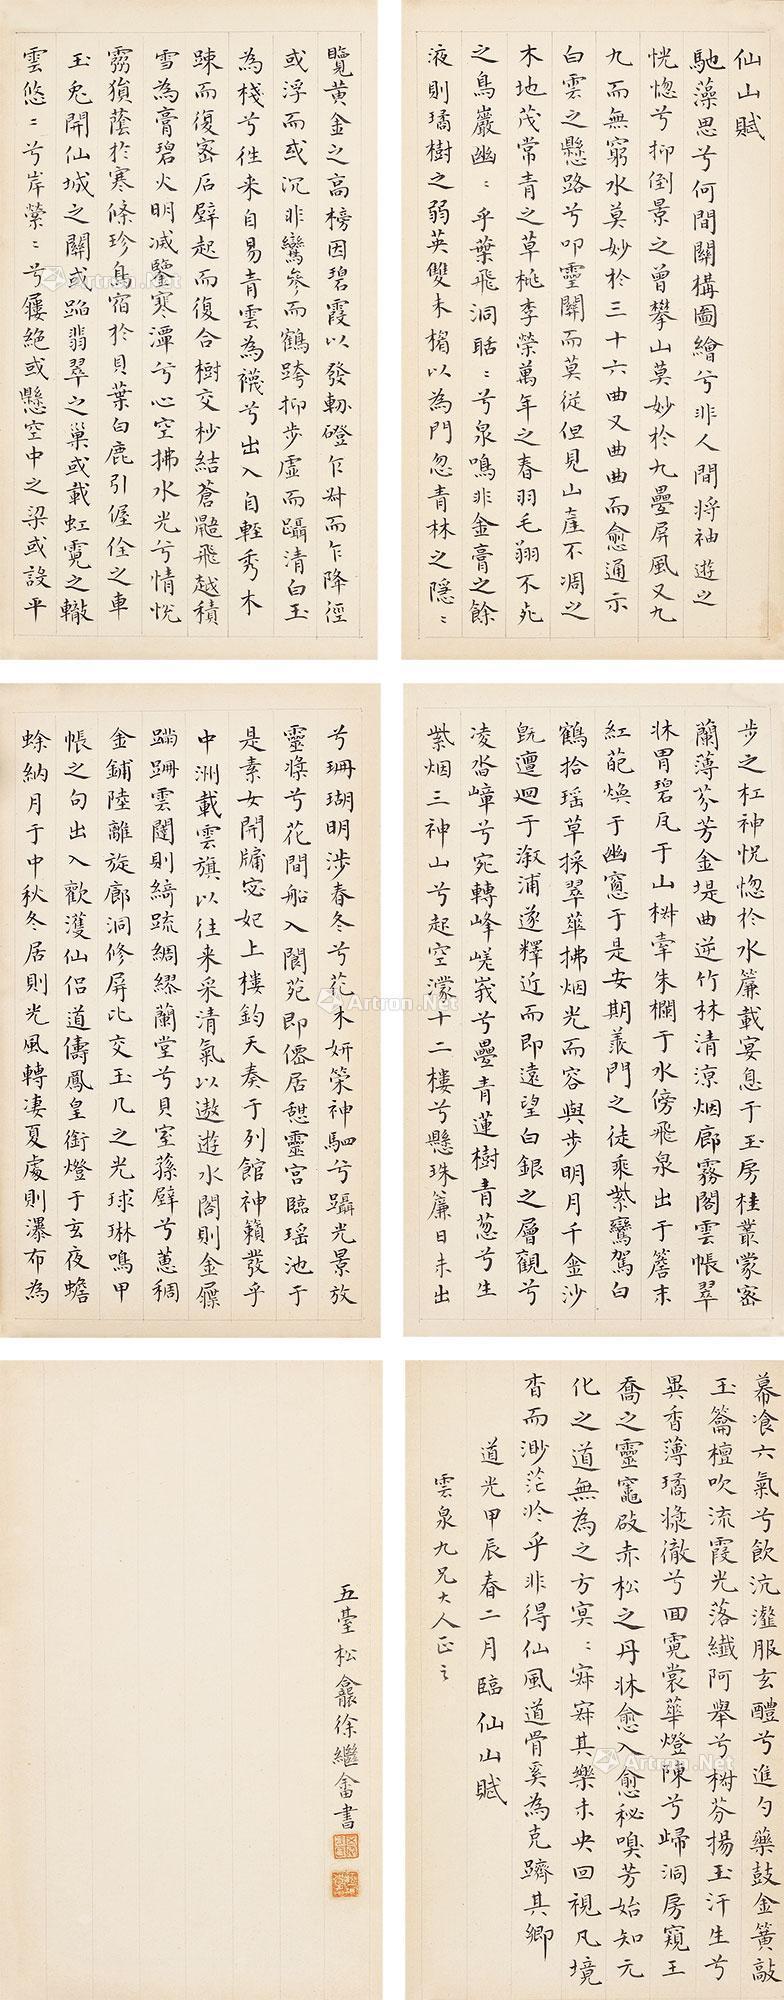 仙山賦
馳藻思兮何間關構圖繪兮非人間將袖遊之
恍惚兮抑倒景之曾攀山莫妙於九疊屏風又九
九而無窮水莫妙於三十六曲又曲曲而愈通示
白雲之懸路兮叩靈關而莫從但見山產不凋之
木地茂常青之草桃李榮萬年之春羽毛翔不死
之鳥巖幽〻乎葉飛洞聒〻兮泉鳴非金膏之餘
液則璚樹之弱英雙木楣以為門忽青林之隱〻
覽黃金之高榜因碧霞以發軔磴乍對而乍降徑
或浮而或沉非鸞參而鶴跨抑步虛而躡清白玉
為棧兮往来自易青雲為襪兮出入自輕秀木
踈而復密石壁起而復合樹交杪結蒼鼯飛越積
雪為膏碧火明滅鑒寒潭兮心空拂水光兮情恍
霧獱蔭於寒條珍鳥宿於貝葉白鹿引偓佺之車
玉兔開仙城之關或蹈翡翠之巢或載虹霓之轍
雲悠〻兮岸縈〻兮屨絕或懸空中之梁或設平
步之杠神恍惚於水簾載宴息于玉房桂叢蒙密
蘭薄芬芳金堤曲逆竹林清涼烟廊霧閣雲帳翠
牀罥碧瓦于山樹牽朱欄于水傍飛泉出于簷末
紅葩煥于幽窻于是安期羨門之徒乘紫鸞駕白
鶴拾瑶草採翠華拂烟光而容與步明月千金沙
既邅迴于溆浦遂釋近而即遠望白銀之層觀兮
凌沓嶂兮宛轉峰嵯峩兮疊青蓮樹青葱兮生
紫烟三神山兮起空濛十二樓兮懸珠簾日未出
兮珊瑚明涉春冬兮花木妍策神駟兮躡光景放
靈槳兮花間船入閬苑即僊居憇靈宮臨瑶池于
是素女開牖宓妃上樓鈞天奏于列館神籟發乎
中洲載雲旗以往来采清氣以遨遊水閣則金屧
蹒跚雲闥則綺疏綢繆蘭堂兮貝室蓀壁兮蕙稠
金鋪陸離旋廊洞修屏比交玉几之光球琳鳴甲
帳之句出入歡濩仙侶道儔鳳皇銜燈于玄夜蟾
蜍納月于中秋冬居則光風轉凄夏處則瀑布為
幕飡六氣兮飲沆瀣服玄醴兮進勺藥鼓金簧敲
玉籥檀吹流霞光落纖阿舉兮樹芬揚玉汗生兮
異香薄璚漿徹兮回霓裳華燈陳兮歸洞房窺王
喬之靈竈啟赤松之丹牀愈入愈秘嗅芳始知元
化之道無為之方冥〻寂寂其樂未央回視凡境
杳而渺茫於乎非得仙風道骨奚為克躋其鄉
道光甲辰春二月臨仙山賦
雲泉九兄大人正之
五臺松龕徐繼畬書